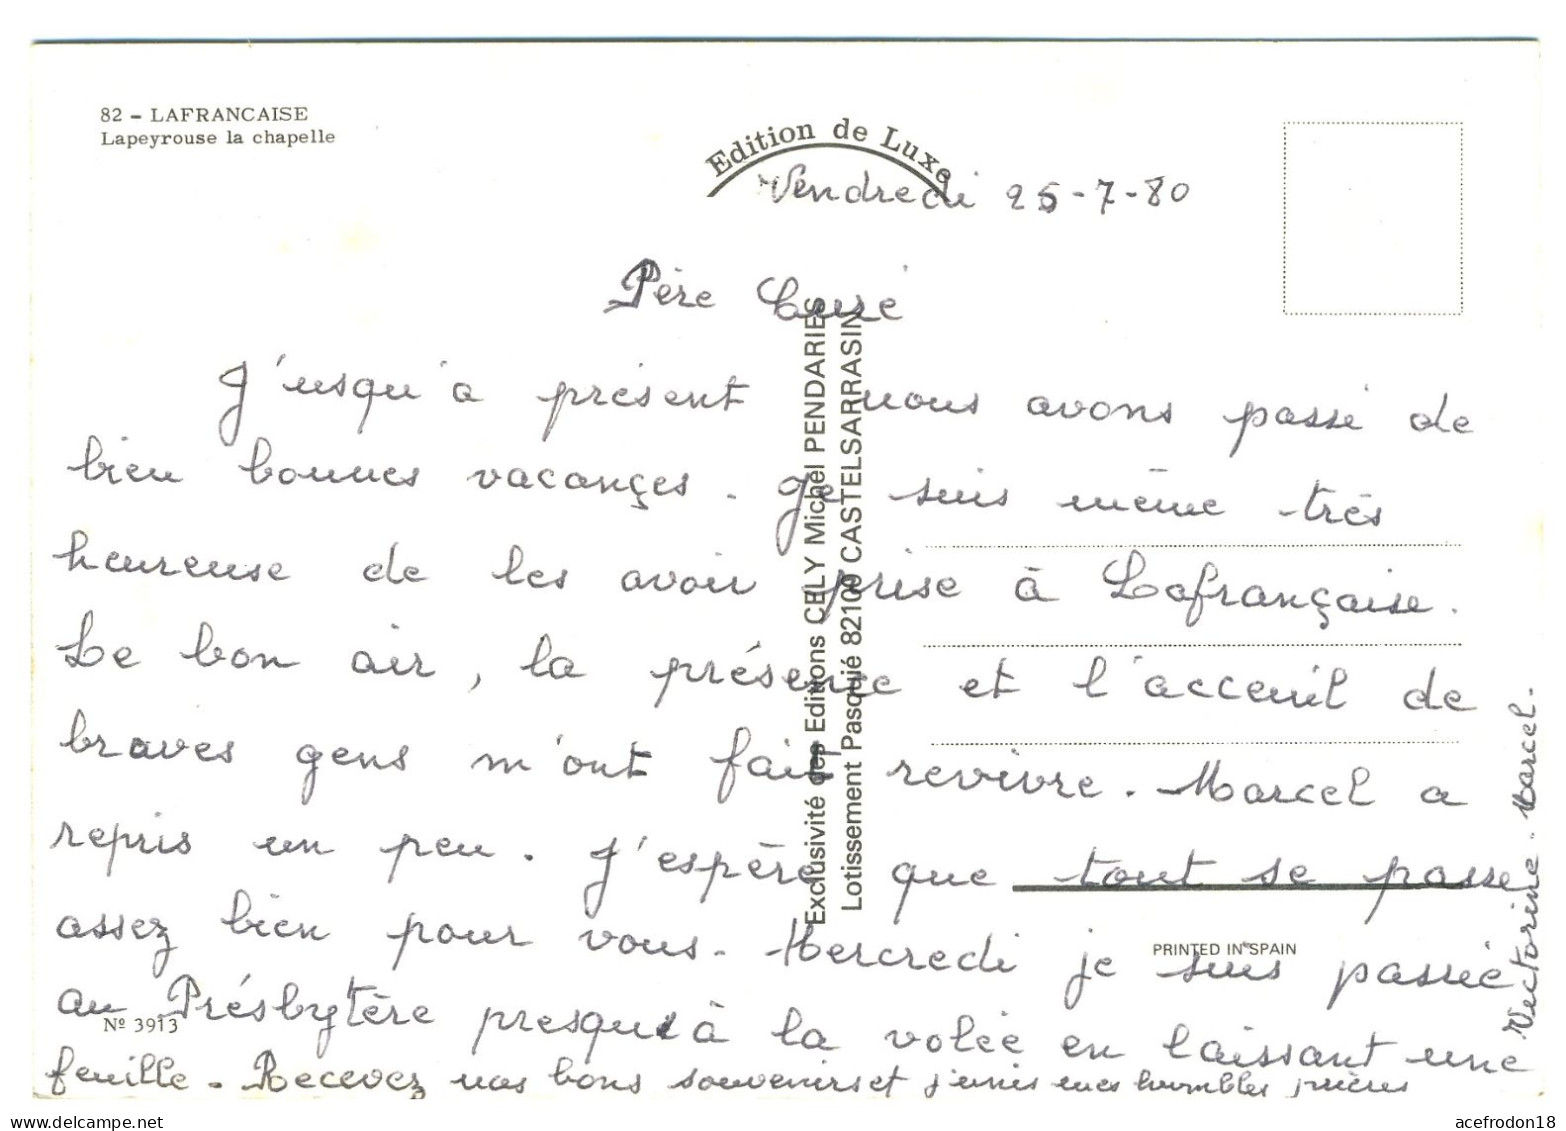 82 - LAFRANCAISE
Lapeyrouse la chapelle
Edition de Luxe
Vendredi 25-7-80
Père Curé
J'usqu'a présent nous avons passé de
bien bonnes vacançes. Je suis même très
heureuse de les avoir prise à Lafrançaise.
Le bon air, la présence et l'acceuil de
braves gens m'ont fait revivre. Marcel a
repris un peu. J'espère que tout se passe
assez bien pour vous. Mercredi je suis passée
au Présbytère presque à la volée en laissant une
feuille. Recevez nos bons souvenirs et j'unis mes humbles prières
Victorine. Marcel.
Exclusivité des Editions CELY Michel PENDARIES
Lotissement Pasquié 82100 CASTELSARRASIN
PRINTED IN SPAIN
Nº 3913
acefrodon18